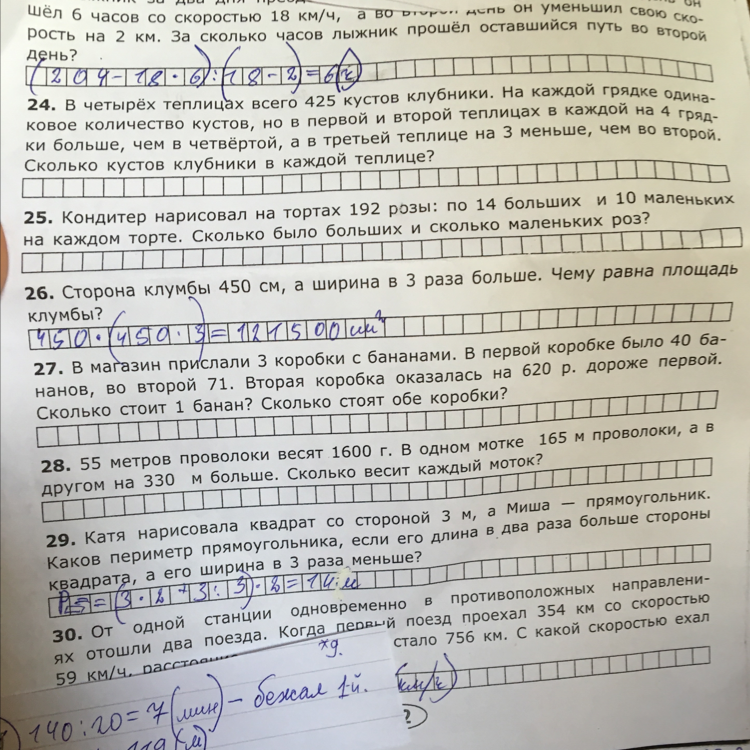 шёл 6 часов со скоростью 18 км/ч, а во второй день он уменьшил свою ско-
рость на 2 км. За сколько часов лыжник прошёл оставшийся путь во второй
день?
(204-18·6):(18-2)=6(ч)
24. В четырёх теплицах всего 425 кустов клубники. На каждой грядке одина-
ковое количество кустов, но в первой и второй теплицах в каждой на 4 гряд-
ки больше, чем в четвёртой, а в третьей теплице на 3 меньше, чем во второй.
Сколько кустов клубники в каждой теплице?
25. Кондитер нарисовал на тортах 192 розы: по 14 больших и 10 маленьких
на каждом торте. Сколько было больших и сколько маленьких роз?
26. Сторона клумбы 450 см, а ширина в 3 раза больше. Чему равна площадь
клумбы?
450·(450·3)=121500см²
27. В магазин прислали 3 коробки с бананами. В первой коробке было 40 ба-
нанов, во второй 71. Вторая коробка оказалась на 620 р. дороже первой.
Сколько стоит 1 банан? Сколько стоят обе коробки?
28. 55 метров проволоки весят 1600 г. В одном мотке 165 м проволоки, а в
другом на 330 м больше. Сколько весит каждый моток?
29. Катя нарисовала квадрат со стороной 3 м, а Миша — прямоугольник.
Каков периметр прямоугольника, если его длина в два раза больше стороны
квадрата, а его ширина в 3 раза меньше?
=(3·2+3:3)·2=14м
30. От одной станции одновременно в противоположных направлени-
ях отошли два поезда. Когда первый поезд проехал 354 км со скоростью
59 км/ч, стало 756 км. С какой скоростью ехал
(км/ч)
140:20=7(мин) - бежал 1-й.
?